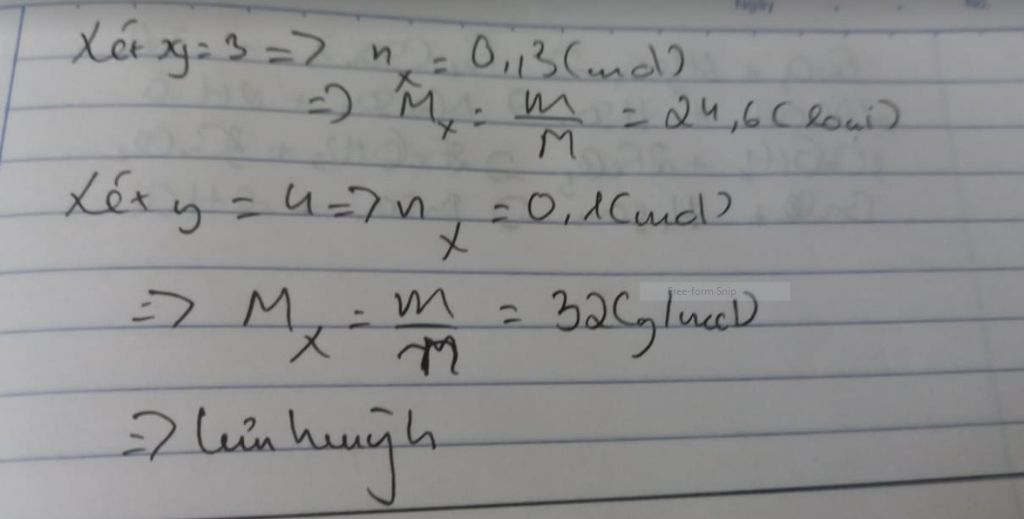 Ngày No.
Xét xy = 3 => n_x = 0,13 (mol)
=> M_x = m/M = 24,6 (loại)
Xét y = 4 => n_x = 0,1 (mol)
Free-form Snip
=> M_x = m/m = 32 (g/mol)
=> lưu huỳnh